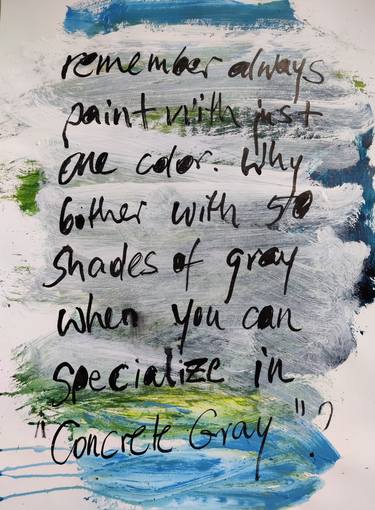 remember always
paint with just
one color. Why
bother with 50
shades of gray
when you can
specialize in
"Concrete Gray"?